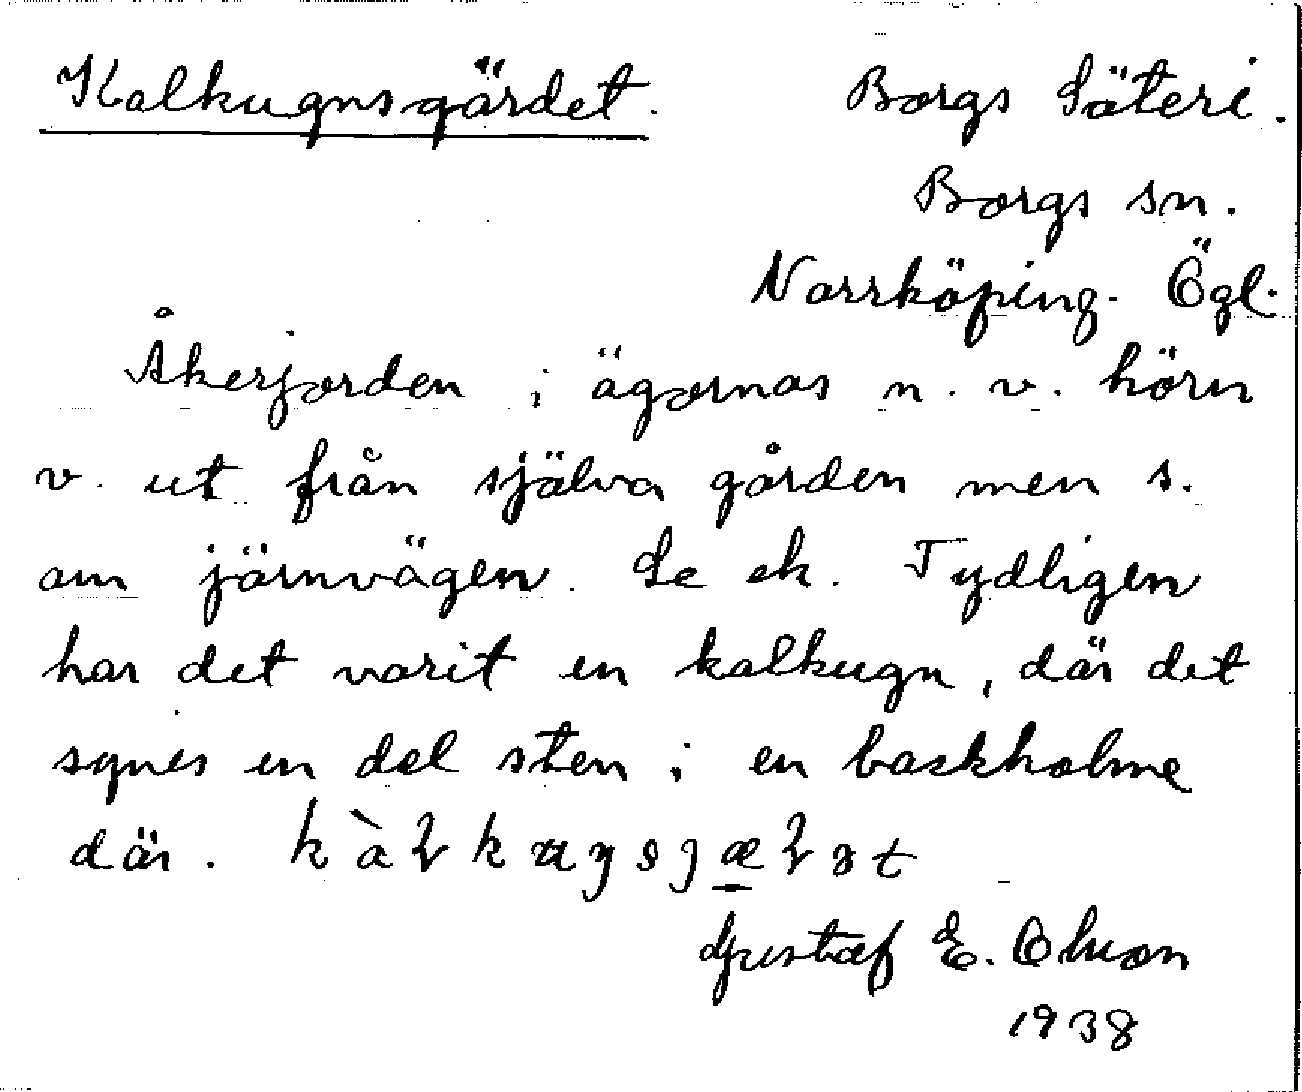 Kalkugnsgärdet. Borgs Säteri.
Borgs sn.
Norrköping. Ögl.
Åkerjorden i ägornas n. v. hörn
v. ut från själva gården men s.
om järnvägen. Se ek. Tydligen
har det varit en kalkugn, där det
synes en del sten i en backholme
där.
Gustaf E. Olson
1938